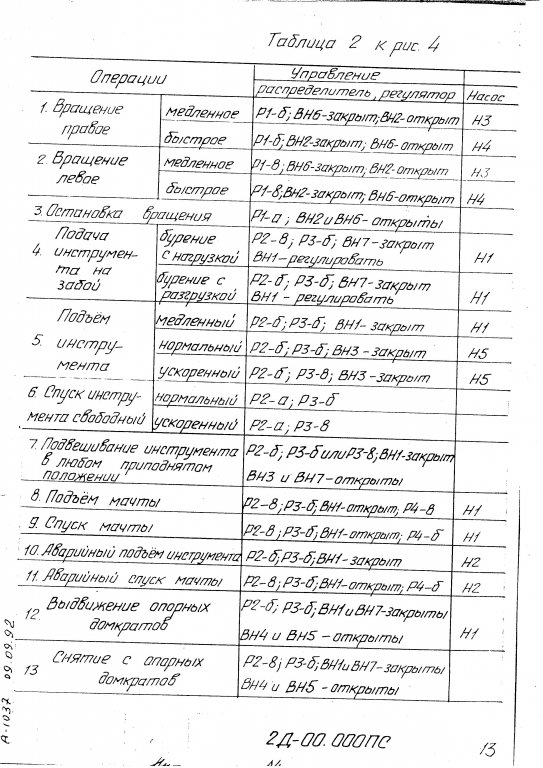 Таблица 2 к рис. 4
Операции
Управление
распределитель, регулятор
Насос
1. Вращение правое
медленное
Р1-б; ВН6-закрыт; ВН2-открыт
Н3
быстрое
Р1-б; ВН2-закрыт; ВН6-открыт
Н4
2. Вращение левое
медленное
Р1-в; ВН6-закрыт; ВН2-открыт
Н3
быстрое
Р1-в; ВН2-закрыт; ВН6-открыт
Н4
3. Остановка вращения
Р1-а; ВН2 и ВН6-открыты
4. Подача инструмента на забой
бурение с нагрузкой
Р2-в; Р3-б; ВН7-закрыт
ВН1-регулировать
Н1
бурение с разгрузкой
Р2-б; Р3-б; ВН7-закрыт
ВН1-регулировать
Н1
5. Подъём инструмента
медленный
Р2-б; Р3-б; ВН1-закрыт
Н1
нормальный
Р2-б; Р3-б; ВН3-закрыт
Н5
ускоренный
Р2-б; Р3-в; ВН3-закрыт
Н5
6. Спуск инструмента свободный
нормальный
Р2-а; Р3-б
ускоренный
Р2-а; Р3-в
7. Подвешивание инструмента
в любом приподнятом
положении
Р2-б; Р3-б или Р3-в; ВН1-закрыт
ВН3 и ВН7-открыты
8. Подъём мачты
Р2-в; Р3-б; ВН1-открыт; Р4-в
Н1
9. Спуск мачты
Р2-в; Р3-б; ВН1-открыт; Р4-б
Н1
10. Аварийный подъём инструмента
Р2-б; Р3-б; ВН1-закрыт
Н2
11. Аварийный спуск мачты
Р2-в; Р3-б; ВН1-открыт; Р4-б
Н2
12. Выдвижение опорных
домкратов
Р2-б; Р3-б; ВН1 и ВН7-закрыты
ВН4 и ВН5-открыты
Н1
13 Снятие с опорных
домкратов
Р2-в; Р3-б; ВН1 и ВН7-закрыты
ВН4 и ВН5-открыты
А-1037 09.09.92
2Д-00.000ПС
13